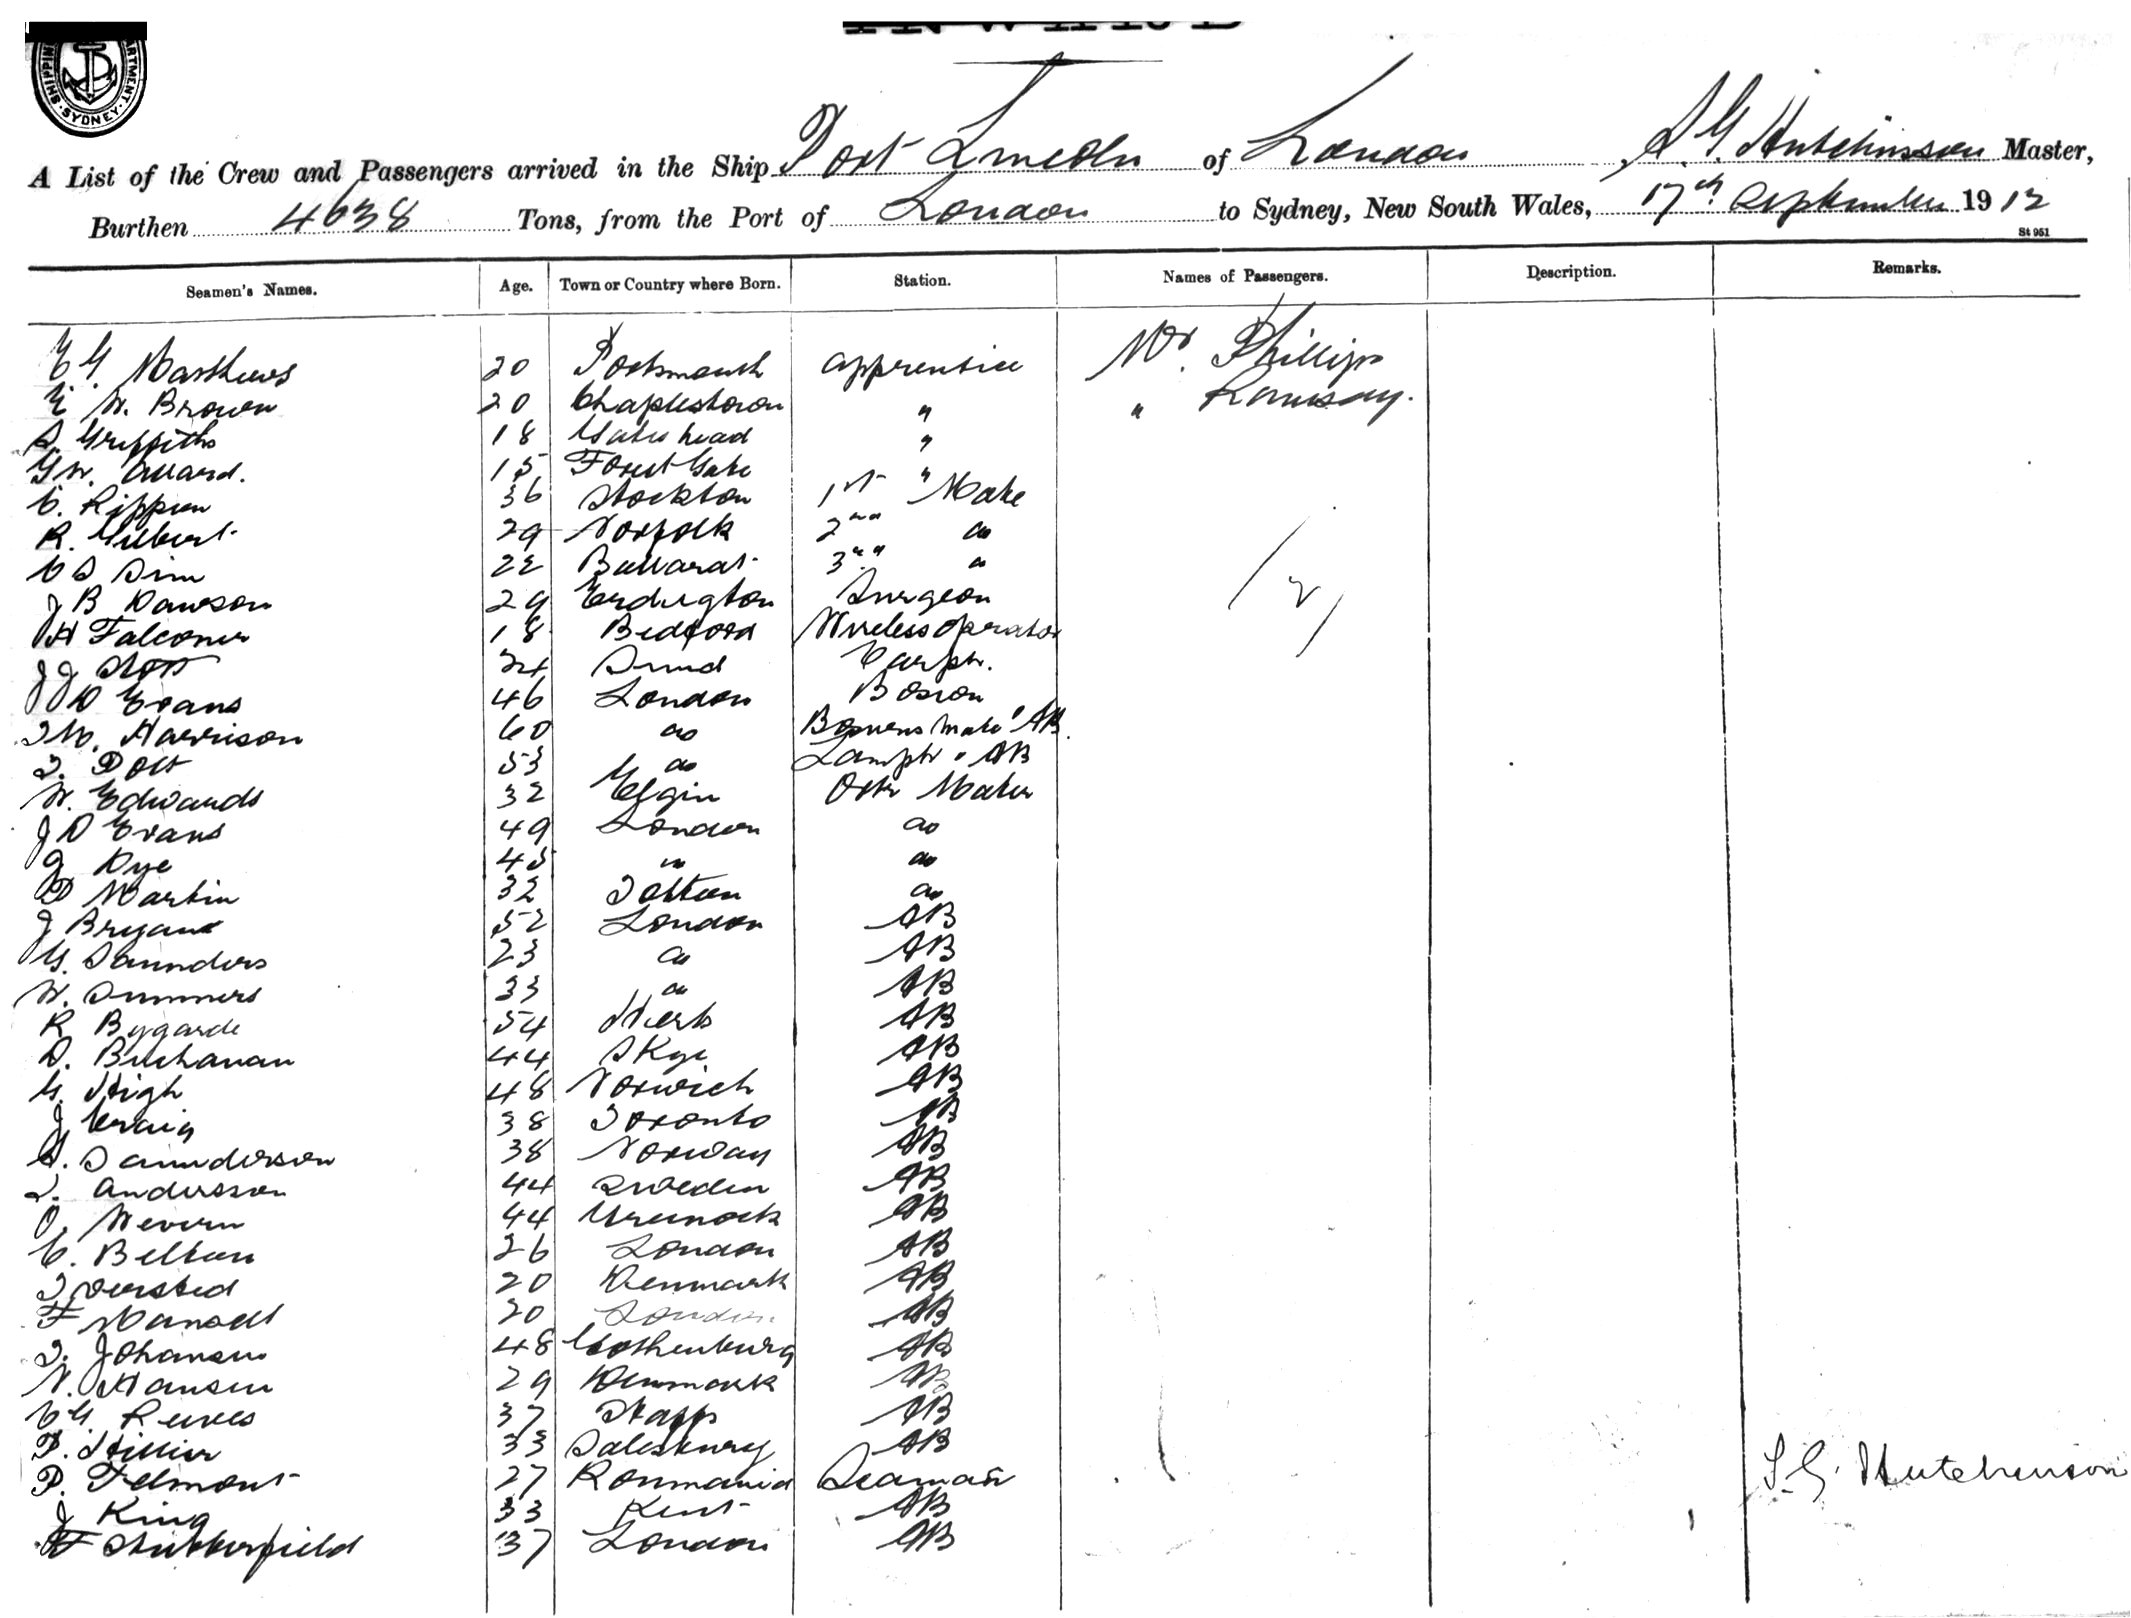 SHIPPING DEPARTMENT. SYDNEY.
INWARD
A List of the Crew and Passengers arrived in the Ship Port Lincoln of London S. G. Hutchinson Master,
Burthen 4638 Tons, from the Port of London to Sydney, New South Wales, 17th September 1912
St 951
Seamen's Names. Age. Town or Country where Born. Station. Names of Passengers. Description. Remarks.
E G. Matthews 20 Portsmouth apprentice Mr. Phillips
E W. Brown 20 Chaplestown " " Ramsay.
S. Griffiths 18 Gateshead "
G W. Allard. 15 Forest Gate "
C. Rippon 36 Stockton 1st Mate
R. Gilbert 29 Norfolk 2nd do
C S Sim 22 Ballarat 3rd "
J B Dawson 29 Erdington Surgeon
H Falconer 18 Bedford Wireless operator
J J Stott 24 Sund Carptr.
J D Evans 46 London Bosson
T W. Harrison 60 do Bosuns Mate & AB.
T. Pott 53 do Lamptr " AB
W. Edwards 32 Elgin Qtr Master
J D Evans 49 London do
J Dye 45 " do
P Martin 32 Totton do
J Bryant 52 London AB
G. Saunders 23 do AB
W. Summers 33 do AB
R Bygarde 54 Herts AB
D. Buchanan 44 Skye AB
G. High 48 Norwich AB
J Craig 38 Toronto AB
S. Saunderson 38 Norway AB
T. Andersson 44 Sweden AB
O. Wevern 44 Greenock AB
C. Belton 26 London AB
T Oersted 20 Denmark AB
F Mansell 20 London AB
T. Johansen 48 Gothenburg AB
N. Hansen 29 Denmark AB
C G. Reeves 37 AB
P. Hillier 33 Salesbury AB
P. Felmont 27 Roumania Seaman S. G. Hutchinson
J King 33 Kent AB
F Stutterfield 37 London AB